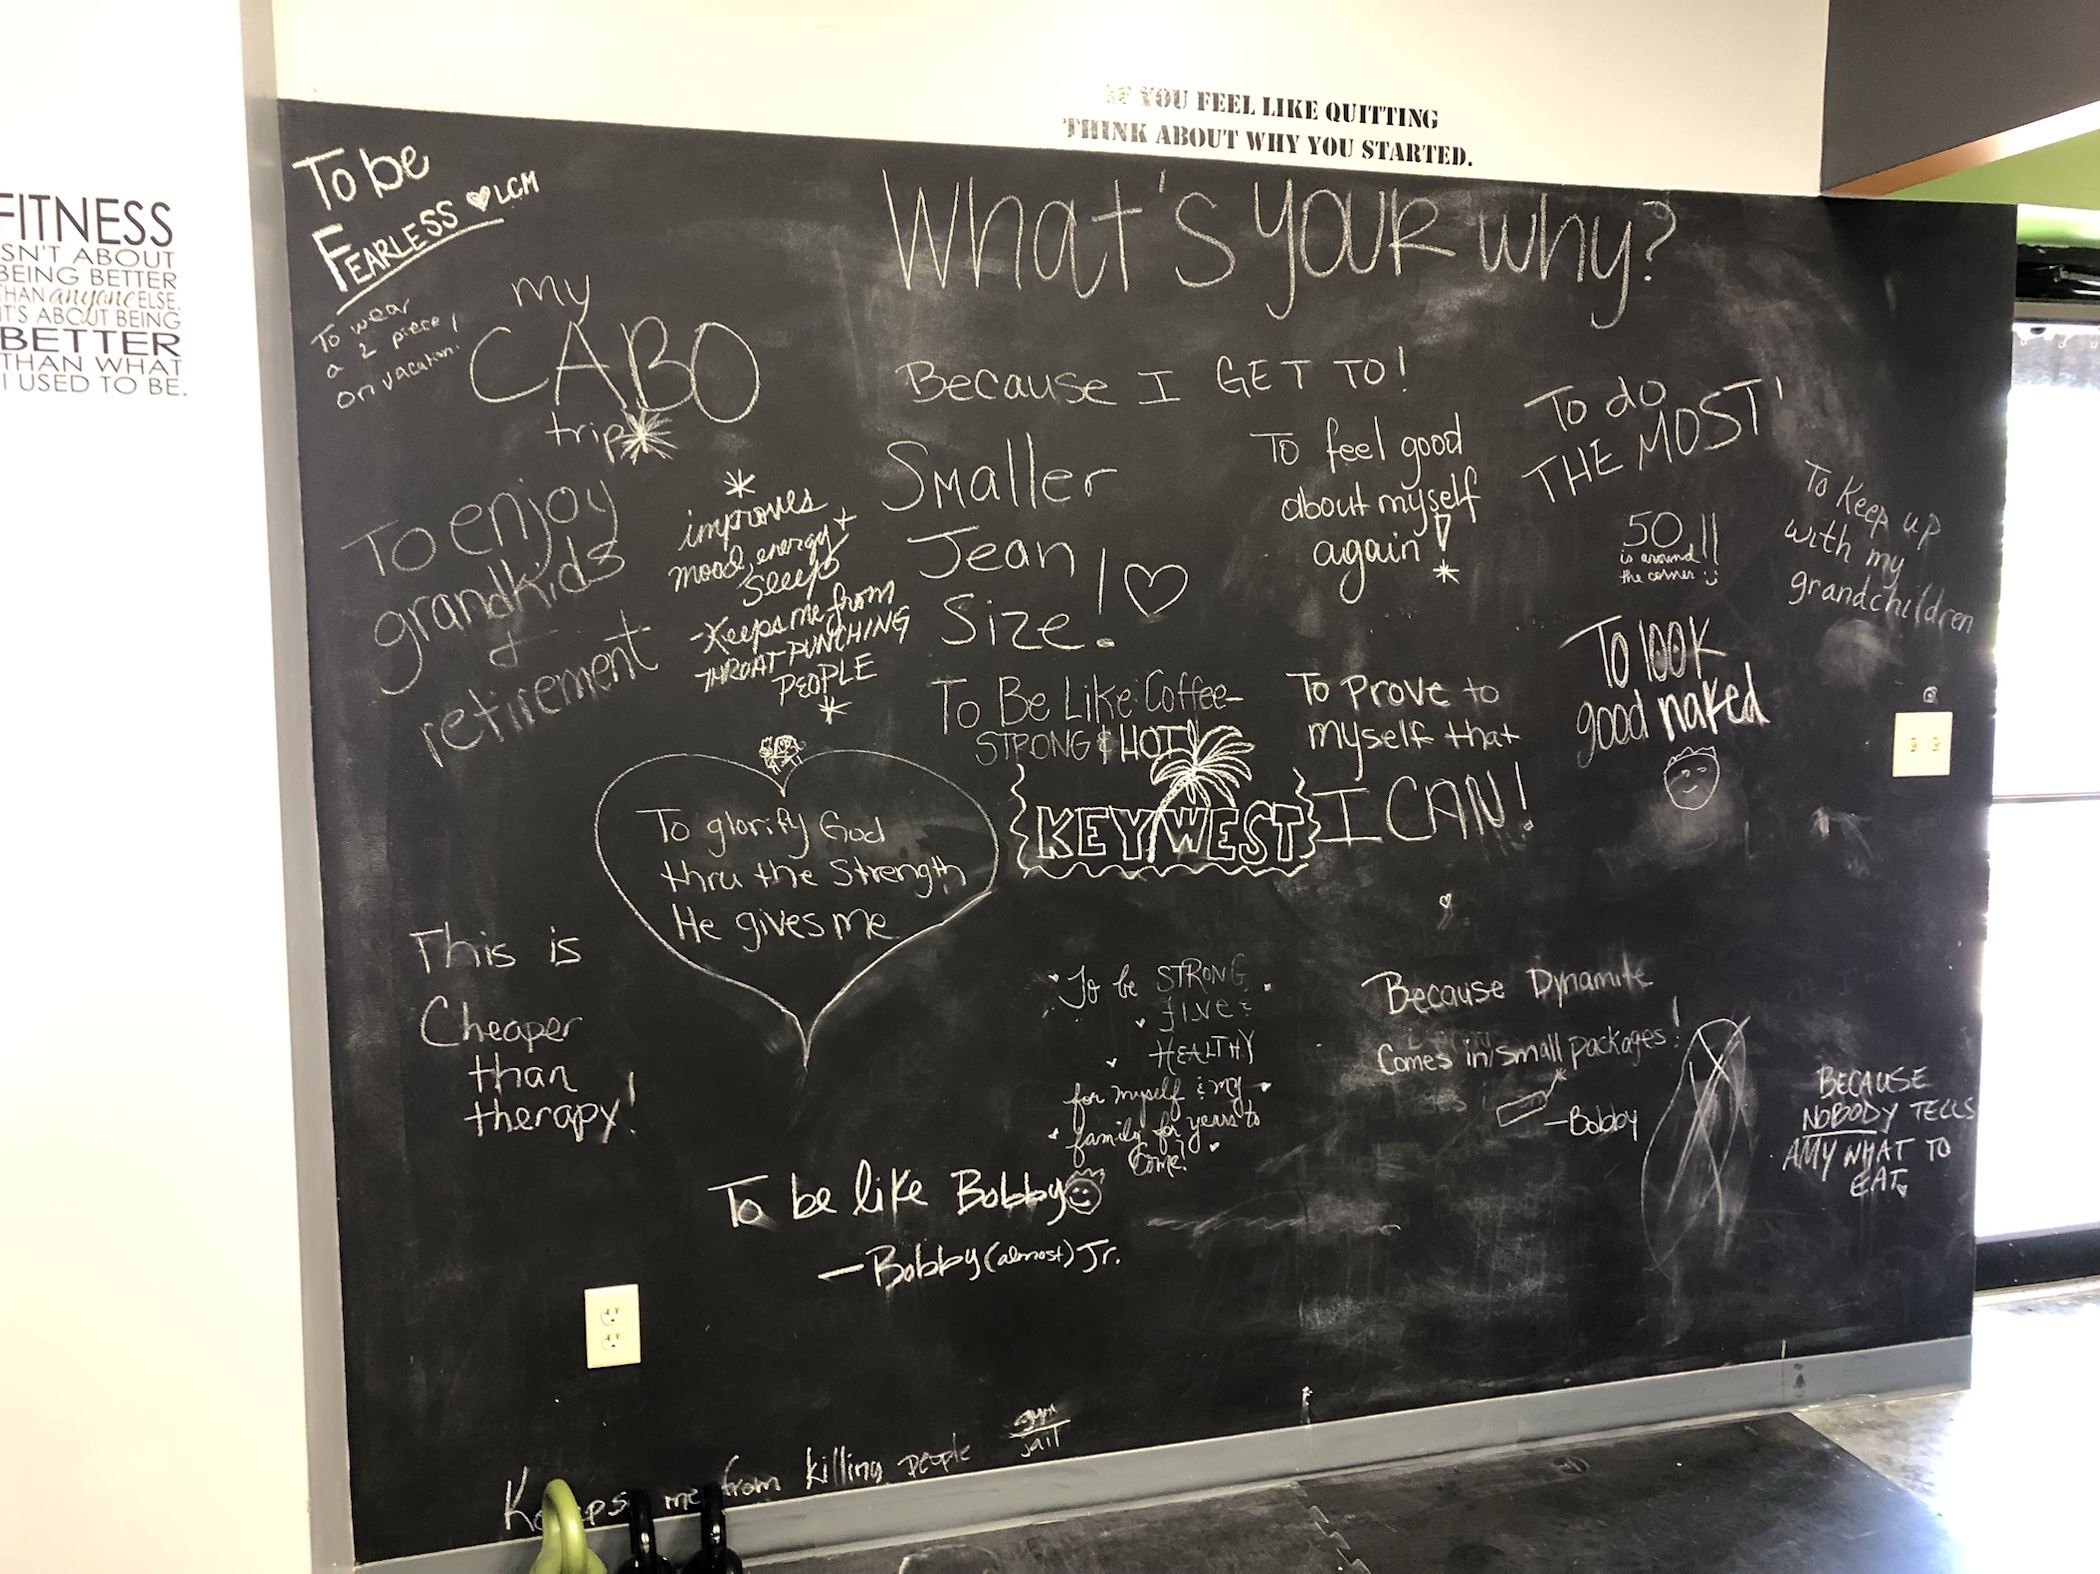 IF YOU FEEL LIKE QUITTING
THINK ABOUT WHY YOU STARTED.
FITNESS
ISN'T ABOUT
BEING BETTER
THAN anyone ELSE.
IT'S ABOUT BEING
BETTER
THAN WHAT
I USED TO BE.
What's your why?
To be
FEARLESS LCM
To wear
a 2 piece
on vacation.
my
CABO
trip
To enjoy
grandkids
+
retirement
improves
mood, energy +
sleep
-Keeps me from
THROAT PUNCHING
PEOPLE
Because I GET TO!
Smaller
Jean
Size!
To feel good
about myself
again!
To do
THE MOST!
50!!
is around
the corner :)
To Keep up
with my
grandchildren
To look
good naked
To Be Like Coffee-
STRONG & HOT!
KEY WEST
To Prove to
myself that
I CAN!
To glorify God
thru the Strength
He gives me
This is
Cheaper
than
therapy!
To be STRONG
HEALTHY
for myself & my
family for years to
come!
Because Dynamite
Comes in small packages!
-Bobby
BECAUSE
NOBODY TELLS
AMY WHAT TO
EAT
To be like Bobby
-Bobby (almost) Jr.
Keeps me from killing people
gym
jail